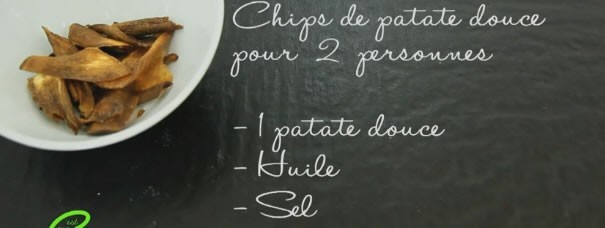 Chips de patate douce
pour 2 personnes
- 1 patate douce
- Huile
- Sel
est